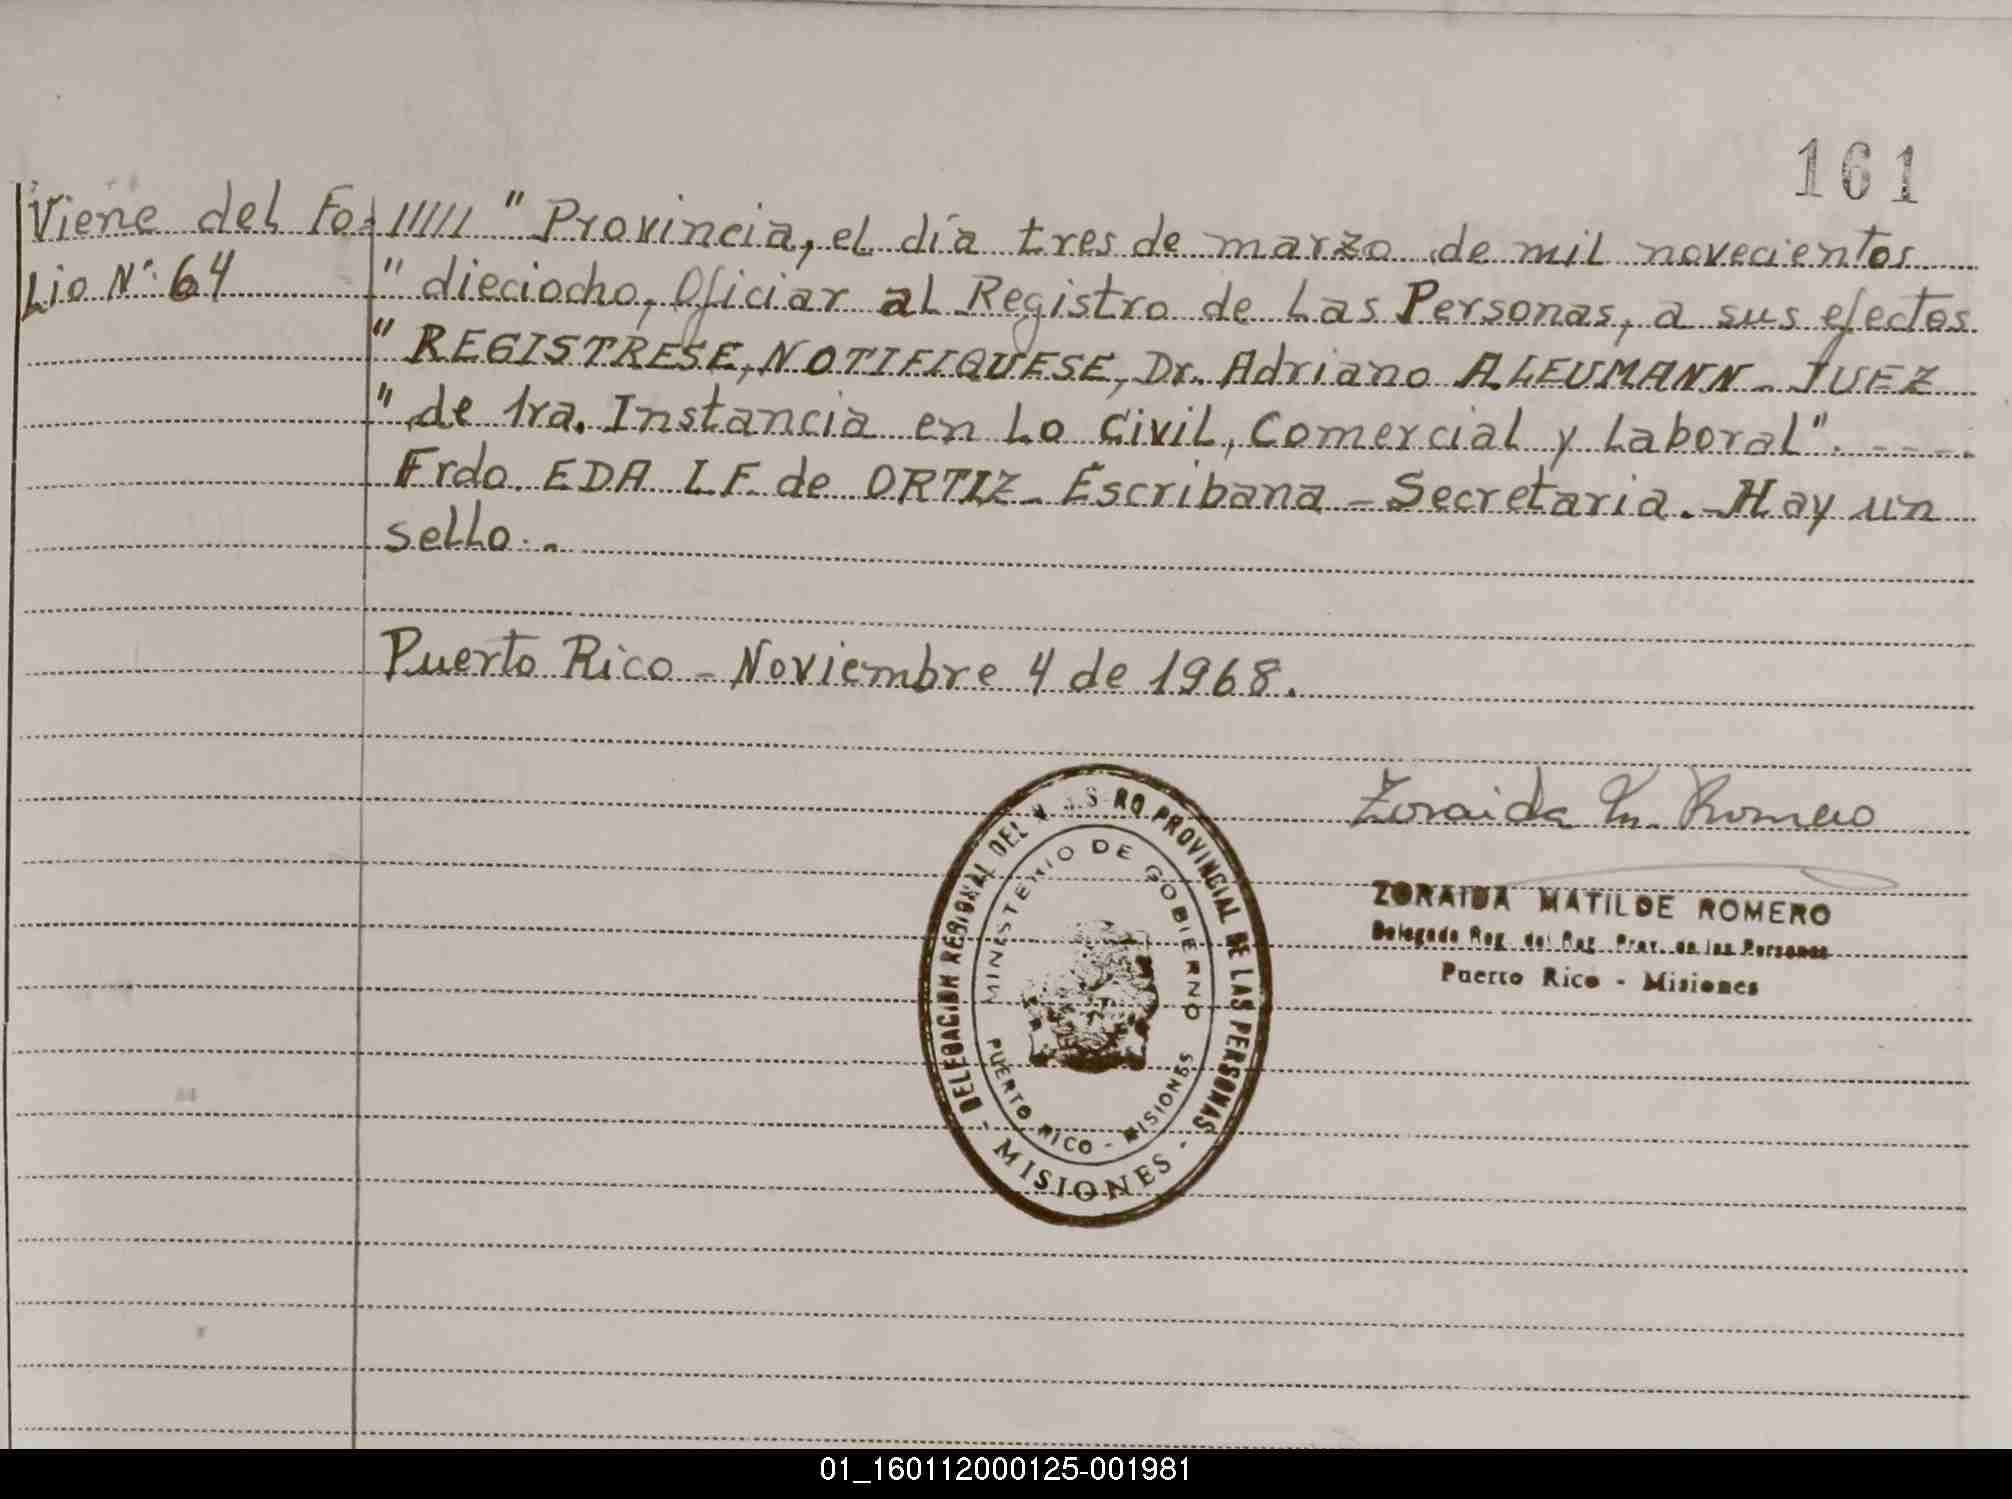 161
Viene del Fo- ///// " Provincia, el día tres de marzo de mil novecientos
Lio Nº: 64 " dieciocho, Oficiar al Registro de Las Personas, a sus efectos
" REGISTRESE, NOTIFIQUESE, Dr. Adriano ALEUMANN - JUEZ
" de 1ra. Instancia en Lo Civil, Comercial y Laboral". - - - -
Frdo. EDA L F. de ORTIZ - Escribana - Secretaria. - Hay un
sello. -
Puerto Rico - Noviembre 4 de 1968.
Zoraida M. Romero
ZORAIDA MATILDE ROMERO
Delegada Reg. del Reg. Prov. de las Personas
Puerto Rico - Misiones
DELEGACION REGIONAL DEL PROVINCIAL DE LAS PERSONAS
MINISTERIO DE GOBIERNO
PUERTO RICO - MISIONES
- MISIONES -
01_160112000125-001981